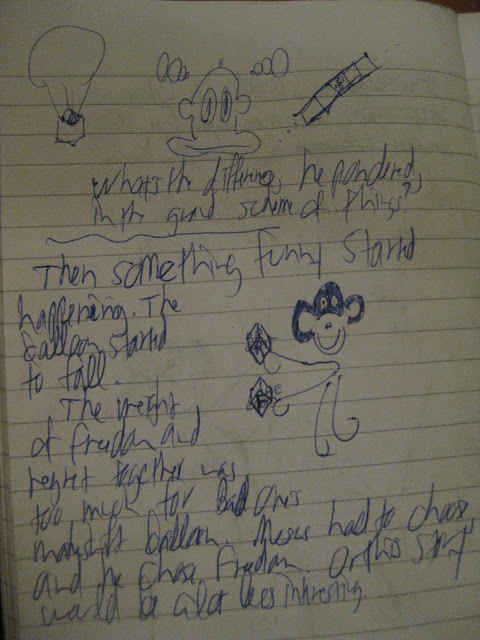 What's the difference, he pondered,
in the grand scheme of things?
Then something funny started
happening. The
balloon started
to fall.
The weight
of freedom and
regret together was
too much for Bad Ones
makeshift balloon. had to choose
and he chose freedom. Or this story
would be a lot less interesting.